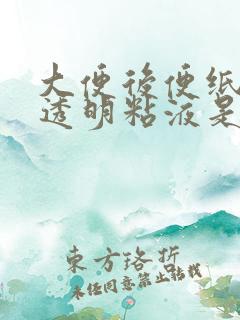 大便後便纸
透明粘液是
東方珞拆
未经同意禁止转载